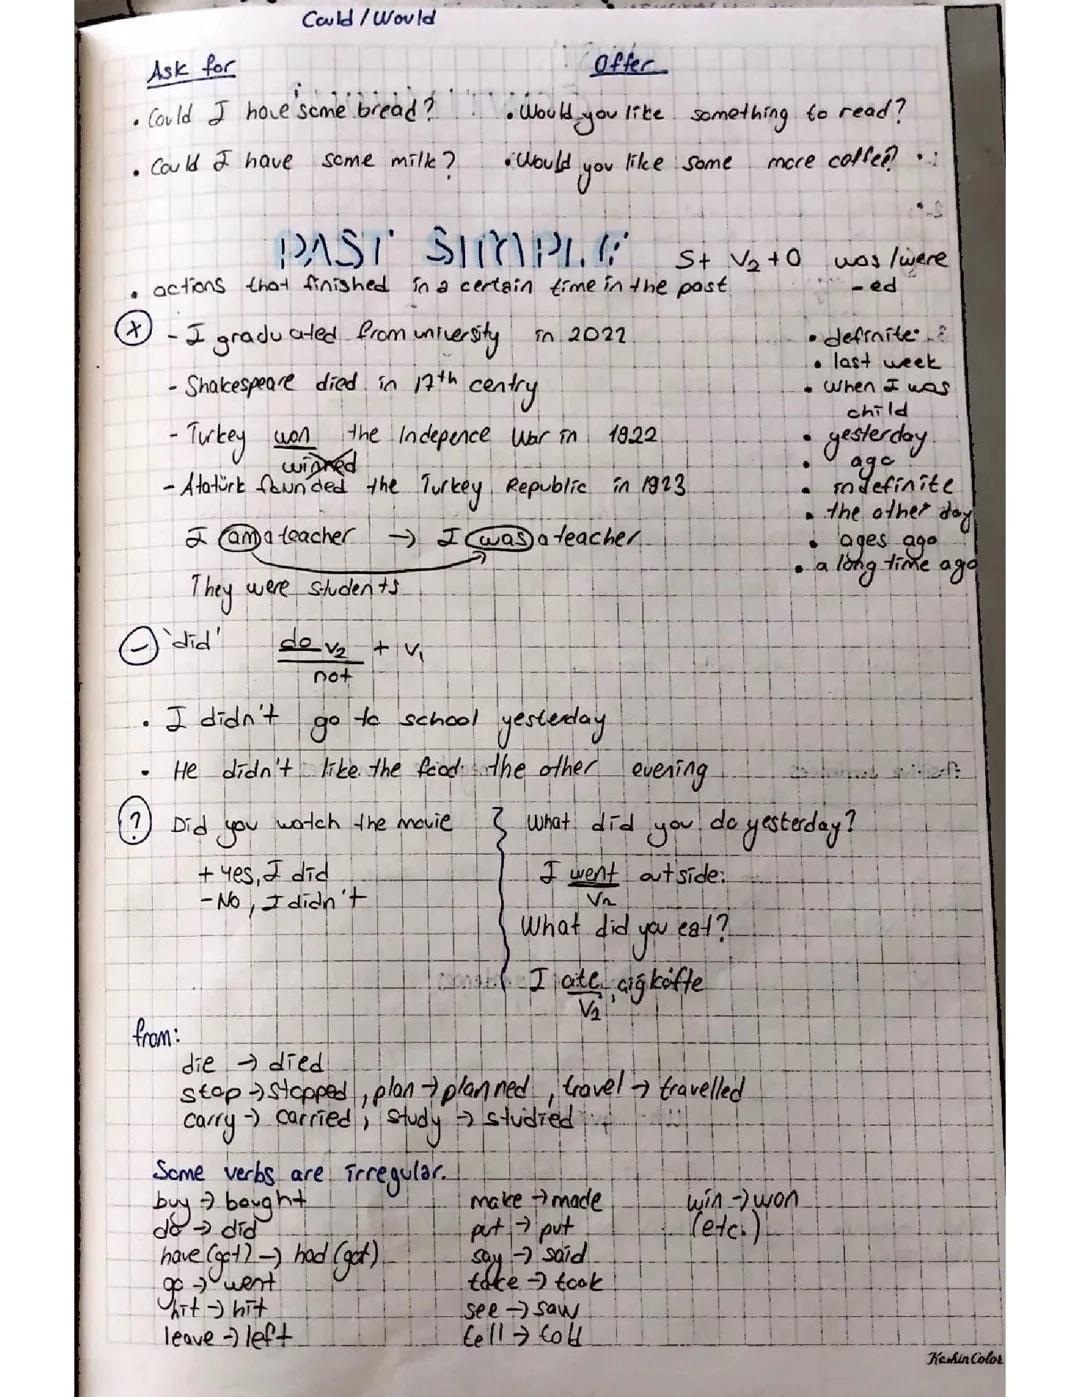 Could / Would
Ask for
Offer
• Could I have some bread?
• Would you like something to read?
• Could I have some milk?
• Would you like some more coffee?
PAST SIMPLE
S+ V2 + O was / were
- ed
• actions that finished in a certain time in the past
(+) - I graduated from university in 2022
- Shakespeare died in 17th centry
- Turkey won the Indepence War in 1922
winned
- Atatürk founded the Turkey Republic in 1923
I am a teacher → I was a teacher
They were students
• definite:
• last week
• when I was
child
• yesterday
• ago
• indefinite
• the other day
• ages ago
• a long time ago
(-) 'did' do V2 + V1
not
• I didn't go to school yesterday
• He didn't like the food the other evening
(?) Did you watch the movie
+ yes, I did
- No, I didn't
What did you do yesterday?
I went outside.
V2
What did you eat?
I ate çiğköfte
V2
from:
die → died
stop → stopped, plan → planned, travel → travelled
carry → carried, study → studied
Some verbs are irregular.
buy → bought
do → did
have (got) → had (got)
go → went
hit → hit
leave → left
make → made
put → put
say → said
take → took
see → saw
tell → told
win → won
(etc.)
Keskin Color